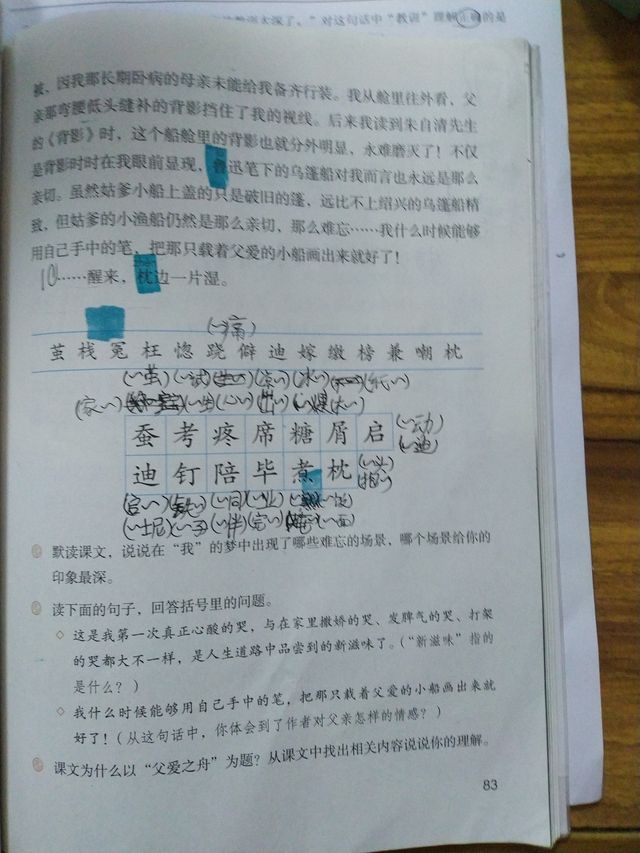 对这句话中“教训”理解正确的是
被，因我那长期卧病的母亲未能给我备齐行装。我从舱里往外看，父
亲那弯腰低头缝补的背影挡住了我的视线。后来我读到朱自清先生
的《背影》时，这个船舱里的背影也就分外明显，永难磨灭了！不仅
是背影时时在我眼前显现，鲁迅笔下的乌篷船对我而言也永远是那么
亲切。虽然姑爹小船上盖的只是破旧的篷，远比不上绍兴的乌篷船精
致，但姑爹的小渔船仍然是那么亲切，那么难忘……我什么时候能够
用自己手中的笔，把那只载着父爱的小船画出来就好了！
10……醒来，枕边一片湿。
(~痛)
茧 栈 冤 枉 惚 跷 僻 迪 嫁 缴 榜 兼 嘲 枕
(~茧)(~试)
蚕 考 疼 席 糖 屑 启 (~动)
(~迪)
迪 钉 陪 毕 煮 枕 (~头)
(~同)(~业)
(~士尼)(~子)(~伴)(完~)(~面)
默读课文，说说在“我”的梦中出现了哪些难忘的场景，哪个场景给你的
印象最深。
读下面的句子，回答括号里的问题。
◇ 这是我第一次真正心酸的哭，与在家里撒娇的哭、发脾气的哭、打架
的哭都大不一样，是人生道路中品尝到的新滋味了。（“新滋味”指的
是什么？）
◇ 我什么时候能够用自己手中的笔，把那只载着父爱的小船画出来就
好了！（从这句话中，你体会到了作者对父亲怎样的情感？）
课文为什么以“父爱之舟”为题？从课文中找出相关内容说说你的理解。
83